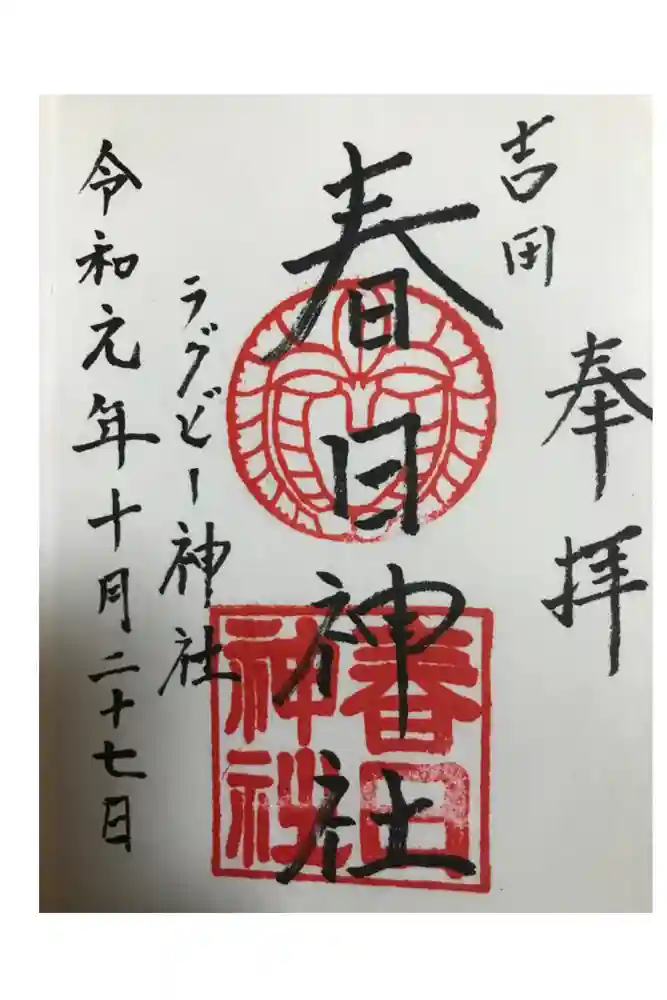 奉拝
吉田
春日神社
春日神社
ラグビー神社
令和元年十月二十七日